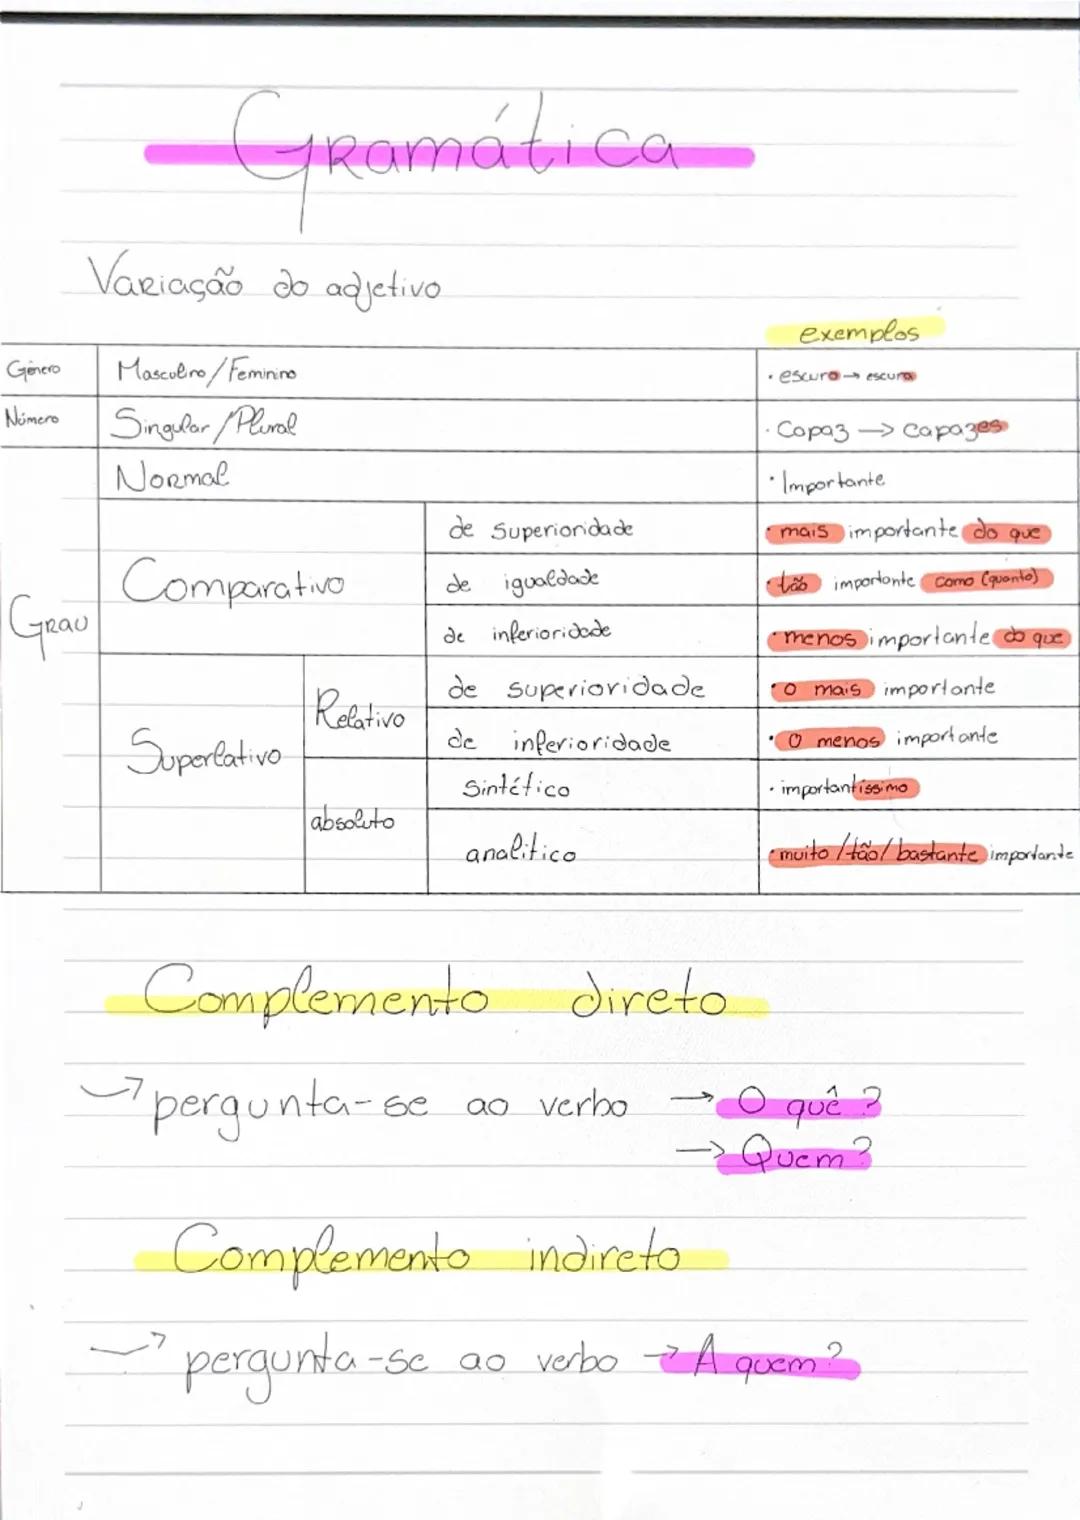 Gramática
Variação do adjetivo
exemplos
Género Masculino/Feminino • escuro → escura
Número Singular/Plural • Capaz → capazes
Grau
Normal • Importante
Comparativo
de superioridade • mais importante do que
de igualdade • tão importante como (quanto)
de inferioridade • menos importante do que
Superlativo
Relativo
de superioridade • o mais importante
de inferioridade • O menos importante
absoluto
sintético • importantíssimo
analitico • muito/tão/bastante importante
Complemento direto
→ pergunta-se ao verbo → O quê?
→ Quem?
Complemento indireto
→ pergunta-se ao verbo → A quem?